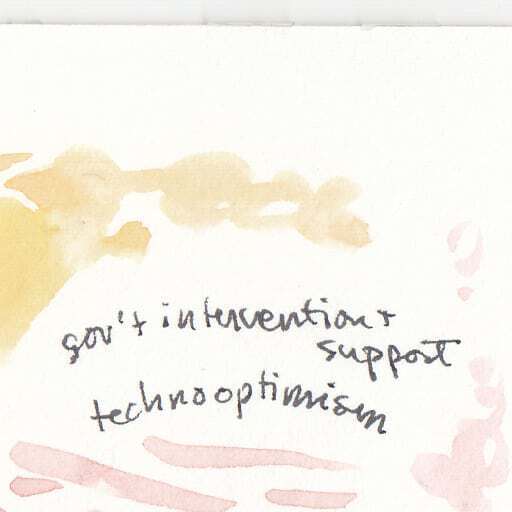 gov't intervention +
support
technooptimism